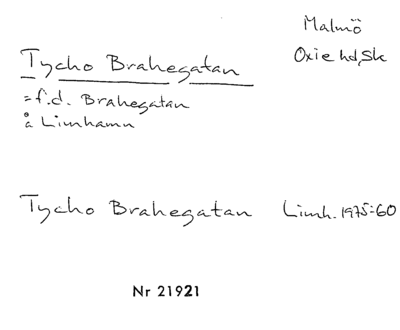 Malmö
Oxie hd, Sk
Tycho Brahegatan
= f.d. Brahegatan
å Limhamn
Tycho Brahegatan Limh. 1975:60
Nr 21921